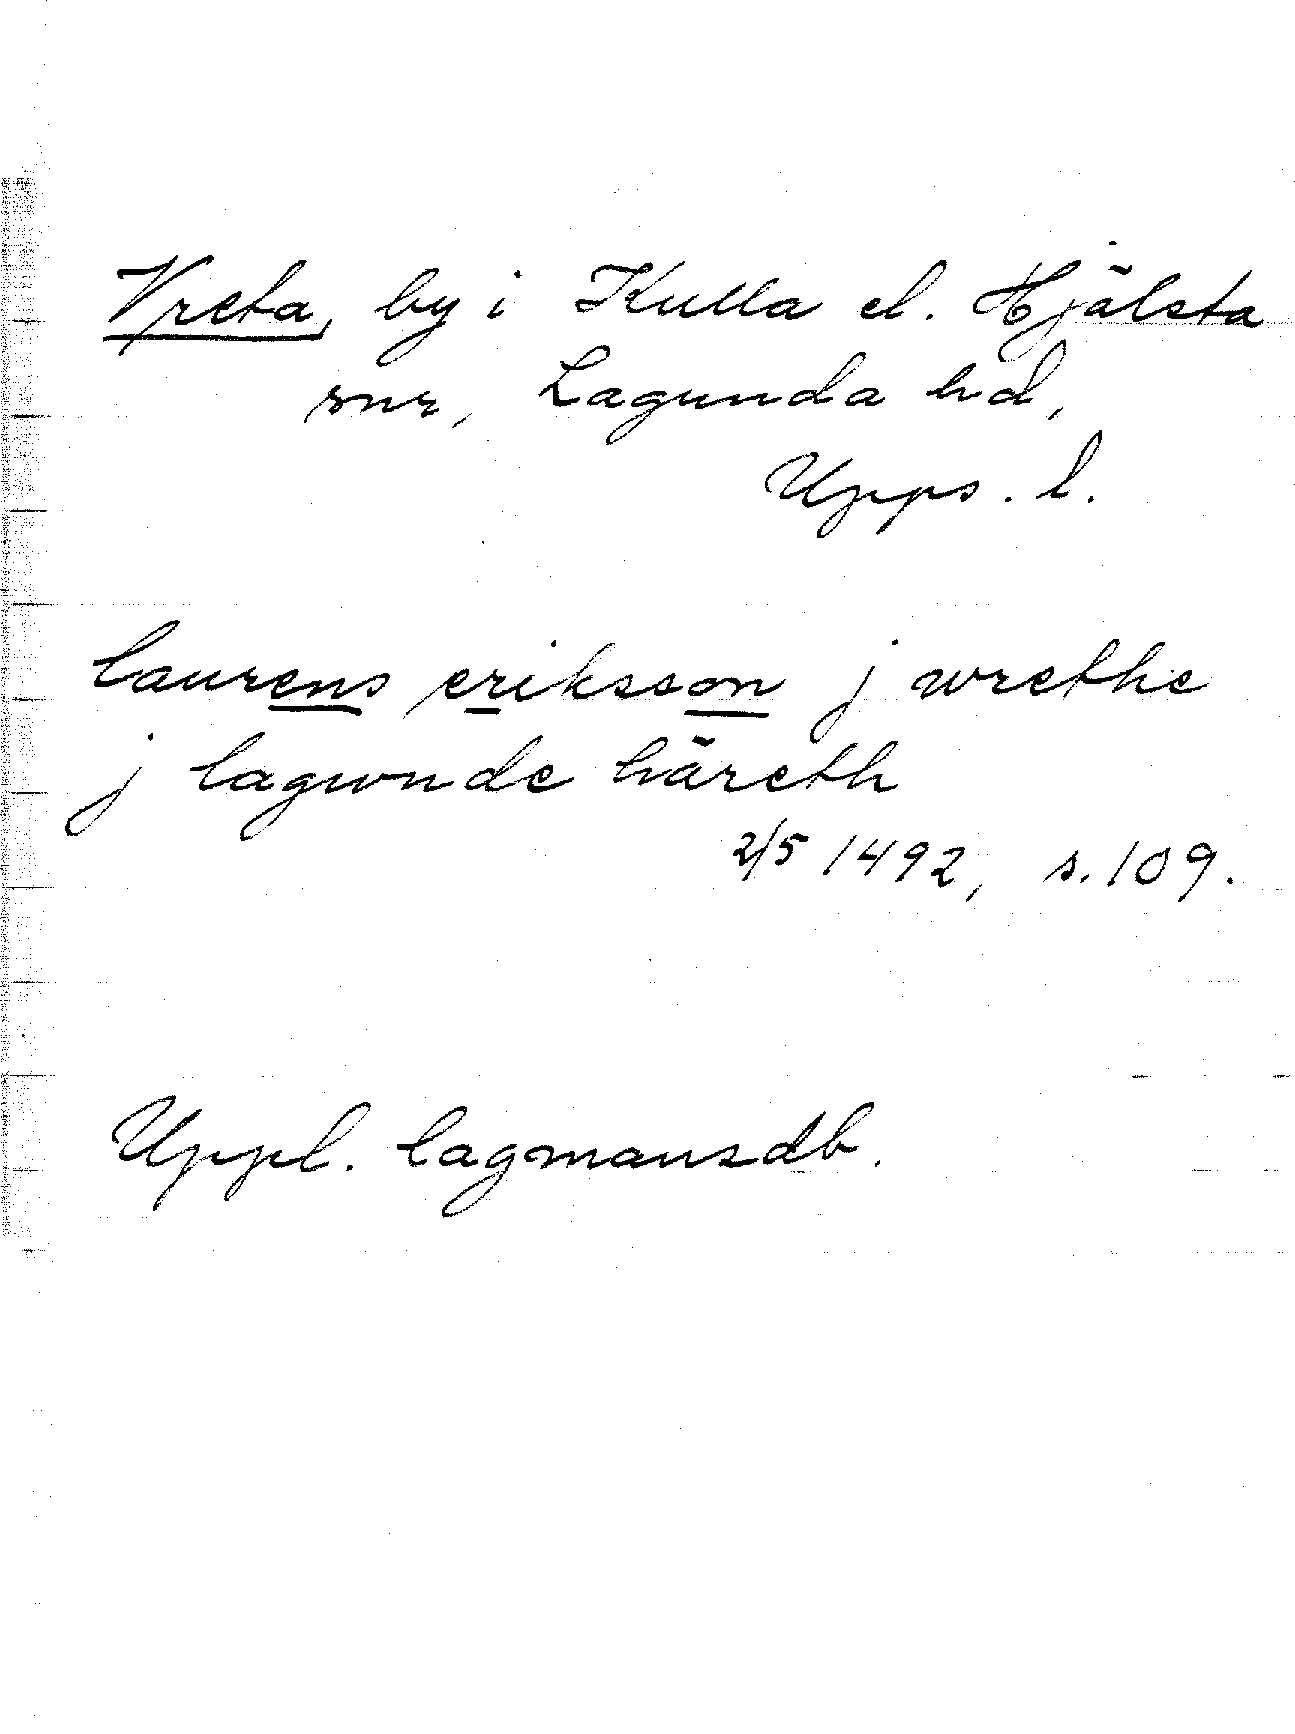 Vreta, by i Kulla el. Hjälsta
snr, Lagunda hd,
Upps. l.
laurens eriksson j wrethe
j lagwnde häreth
2/5 1492, s. 109.
Uppl. lagmansdb.